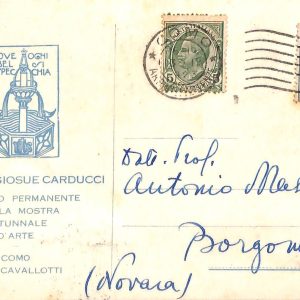 OVE OGNI
BEL
SI
SPEC CHIA
GIOSUE CARDUCCI
O PERMANENTE
LA MOSTRA
TUNNALE
D'ARTE
COMO
CAVALLOTTI
Dott. Prof.
Antonio
Borgom
(Novara)